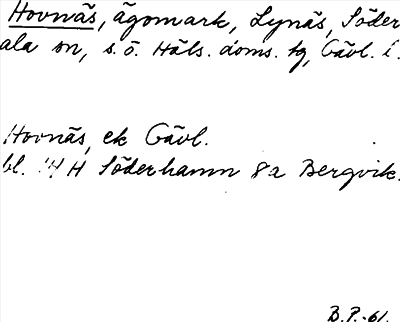 Hovnäs, ägomark, Lynäs, Söder
ala sn, s. ö. Häls. doms. tg, Gävl. l.
Hovnäs, ek Gävl.
bl. 14 H Söderhamn 8 a Bergvik.
B.P.-61.